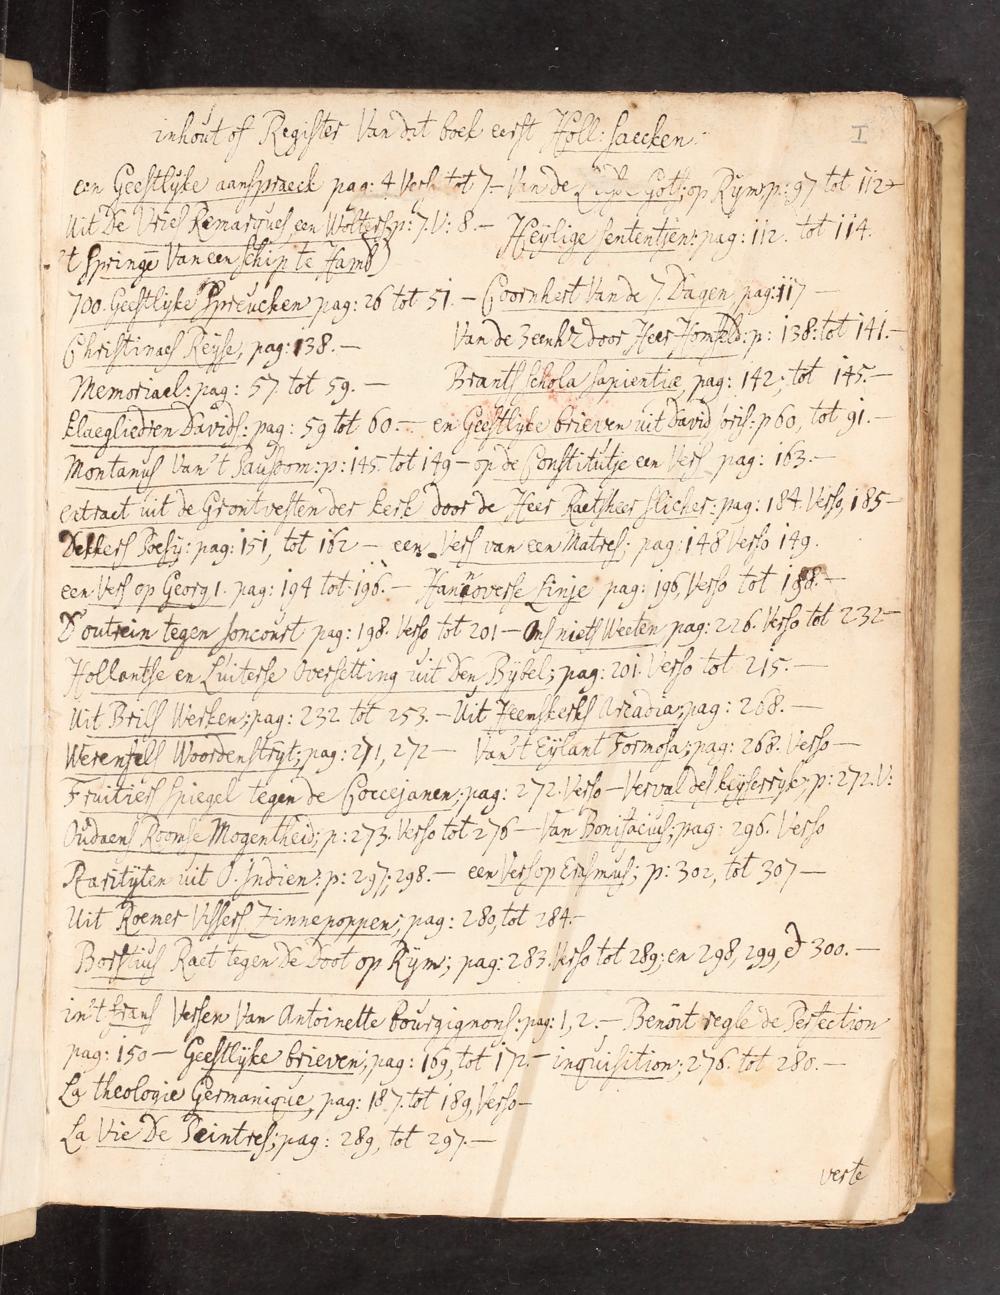 I
inhout of Register Van dit boek eerst Holl: saecken:
een Geestlyke aanspraeck pag: 4 Verso tot 7 – Van de Liefde Gots: op Rym: p: 97 tot 112
Uit De Vries Remarques een Wolters p: 7. V: 8. – Heylige sententjen: pag: 112. tot 114.
't springe Van een schip te Hamb)
700. Geestlyke Spreucken pag: 26 tot 51. – Coornhert Van de 7. Dagen pag: 117 –
Christinaes Reyse, pag: 138. – Van de door Heer p: 138: tot 141. –
Memoriael: pag: 57 tot 59. – Brants schola sapientiæ, pag: 142; tot 145. –
Claegliedren Davids: pag: 59 tot 60 – en Geestlyke brieven uit David p 60, tot 91. –
Montanus Van't p: 145. tot 149 – op de Constitutje een Vers pag: 163. –
extract uit de Grontvesten der kerk door de Heer Raetsheer Slicher: pag: 184. Verso, 185 –
Dekkers Poesy: pag: 151, tot 162 – een Vers van een Matres; pag: 148 Verso 149.
een Vers op Georg 1. pag: 194 tot 196. – Hannoverse Linje pag: 196, Verso tot 198. –
D'outrein tegen Joncourt pag: 198. Verso tot 201 – Ons niets Weeten pag: 226. Verso tot 232 –
Hollantse en Luiterse Oversetting uit Den Bybel; pag: 201. Verso tot 215. –
Uit Brils Werken; pag: 232 tot 253. – Uit Heemskerks Arcadia; pag: 268. –
Werenfels Woordenstryt; pag: 271, 272 – Van't Eylant Formosa; pag: 268. Verso –
Fruitiers spiegel tegen de Coccejanen; pag: 272. Verso – Verval des keyserryk; p: 272. V:
Oudaens Roomse Mogentheid; p: 273. Verso tot 276 – Van Bonifacius; pag: 296. Verso
Rarityten uit O. Indien: p: 297, 298. – een Vers op Erasmus; p: 302, tot 307 –
Uit Roemer Vissers Zinnepoppen; pag: 280, tot 284. –
Borstius Raet tegen De Doot op Rym; pag: 283. Verso tot 289; en 298, 299, & 300. –
in't frans Versen Van Antoinette bourgignons: pag: 1, 2. – Benoit regle de Perfection
pag: 150 – Geestlyke brieven; pag: 169, tot 172. – inquisition; 276. tot 280. –
La theologie Germanique, pag: 187. tot 189, Verso –
La Vie De Peintres; pag: 289, tot 297. –
verte